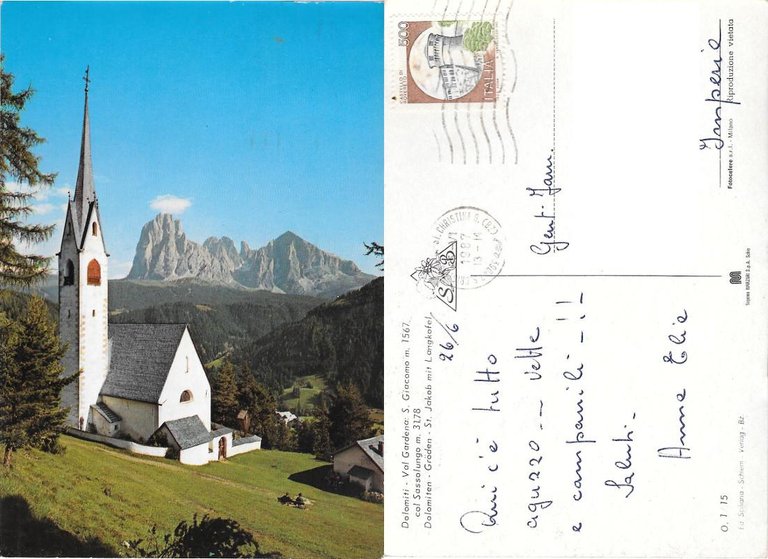 Dolomiti - Val Gardena: S. Giacomo m. 1567.
col Sassolungo m. 3178
Dolomiten - Gröden - St. Jakob mit Langkofel
26/6
Qui c'è tutto
aguzzo -- vette
e campanili -!!
Saluti -
Anna Elia
O. 1 15
Verlag - Bz.
500
ITALIA
1987
Gent. Fam.
Imperia
Fotocelere s.r.l. - Milano
Riproduzione vietata